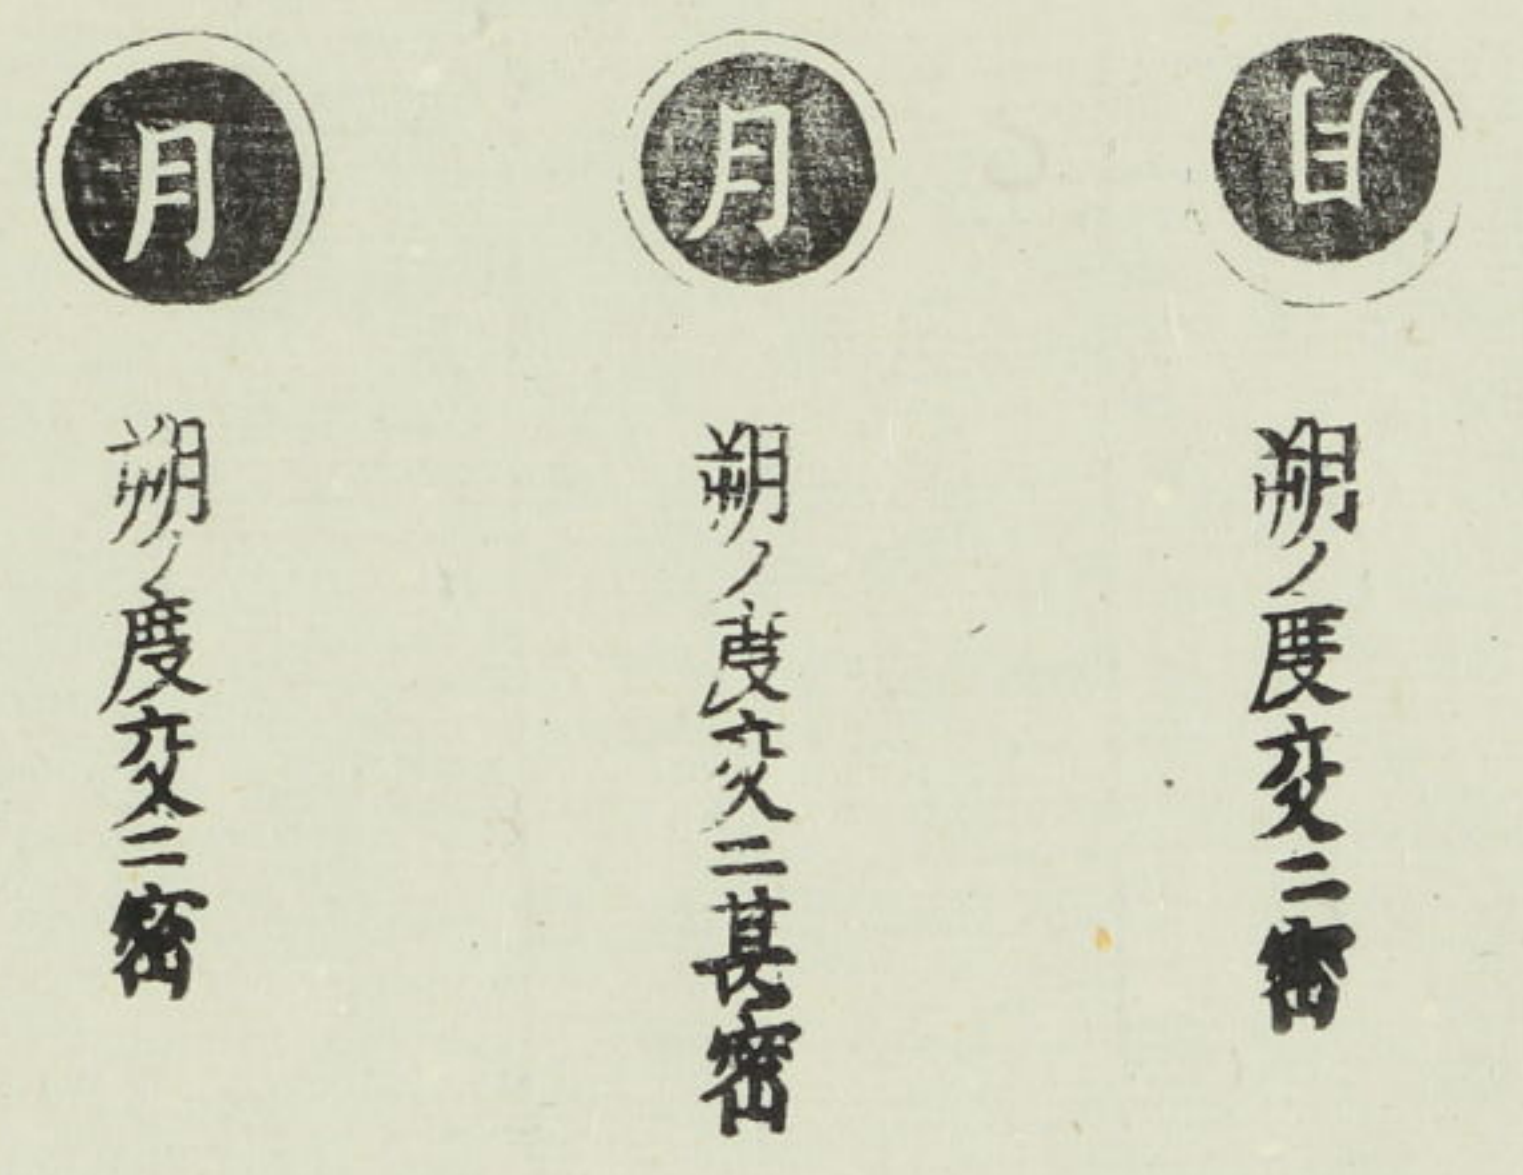 月
朔ノ度交ニ密
月
朔ノ度交ニ甚密
月
朔ノ度交ニ密